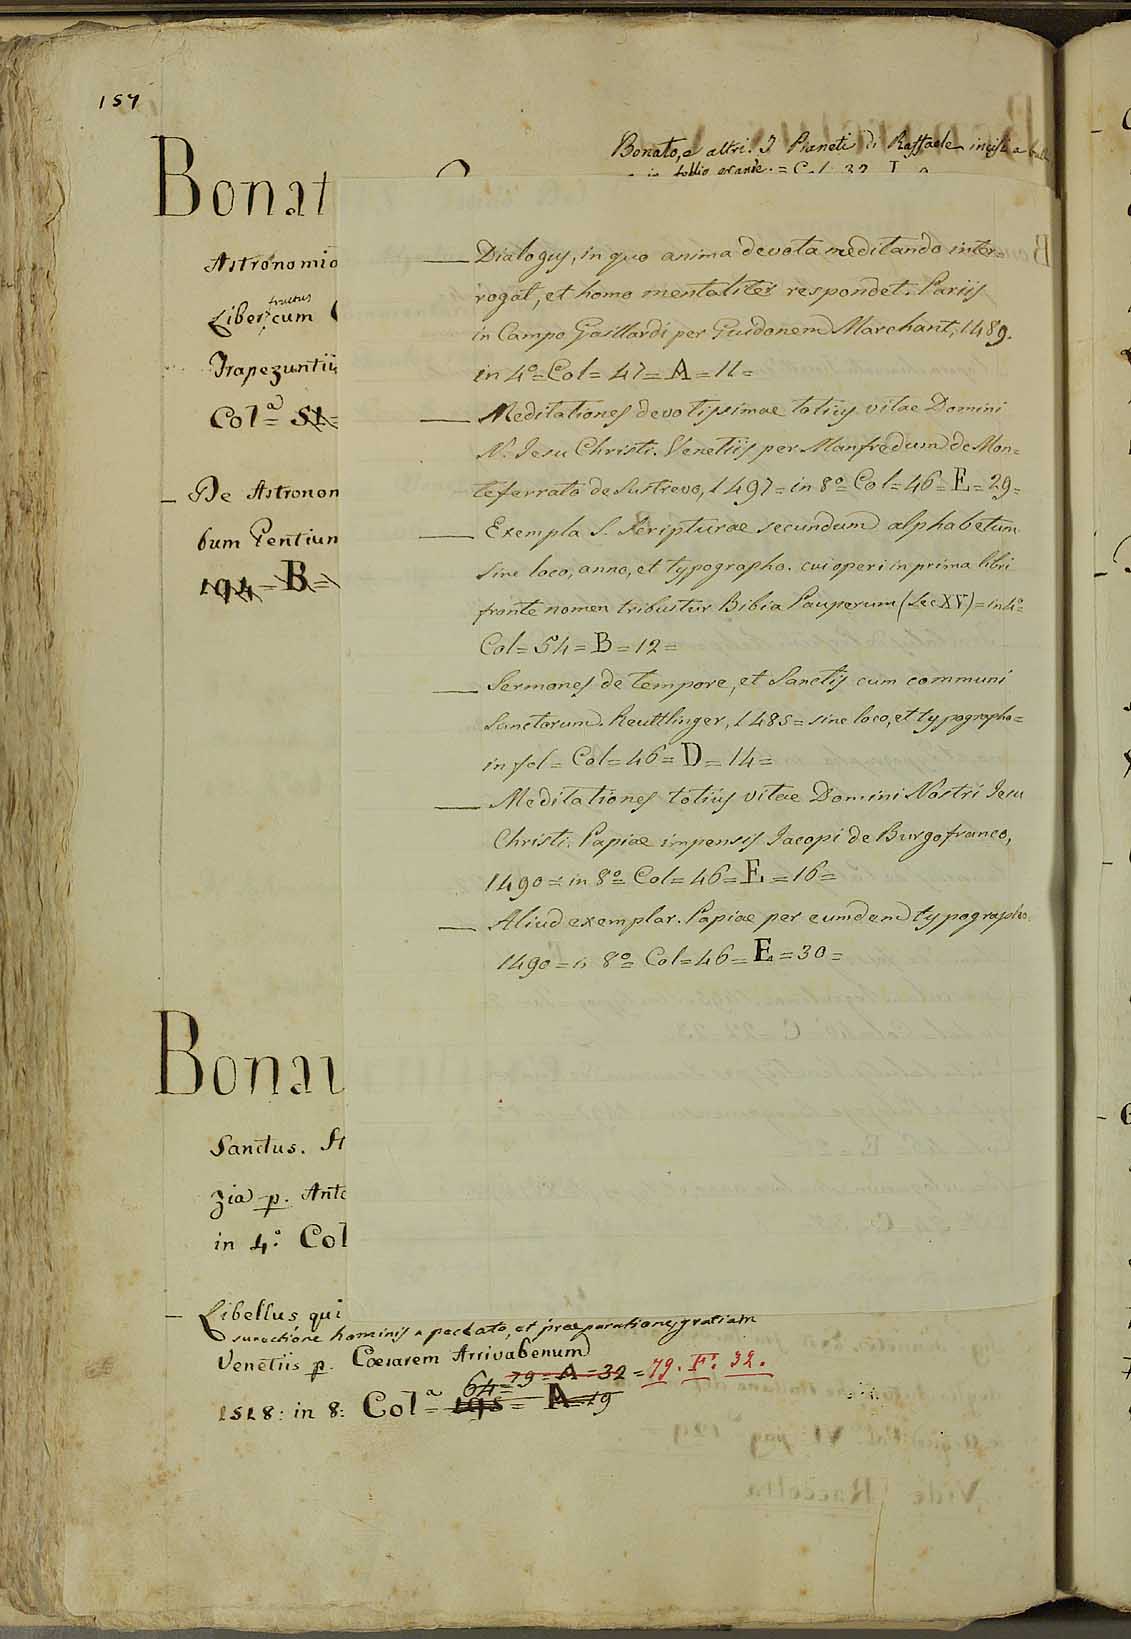 157
Bonato, e altri. I Pianeti di Raffaele incisi a
in foglio grande. = Col. 32
Bonat
Astronomio
Liber, fructus cum
Trapezuntii
Col.a = 51 =
De Astronon
bum Gentium
194 = B =
— Dialogus, in quo anima devota meditando inter=
rogat, et homo mentaliter respondet. Pariis
in Campo Gaillardi per Guidonem Marchant, 1489.
in 4.o = Col = 47 = A = 11 =
— Meditationes devotissimae totius vitae Domini
N. Jesu Christi. Venetiis per Manfredum de Mon=
teferrato de Sustrevo, 1497 = in 8.o = Col = 46 = E = 29 =
— Exempla S. Scripturae secundum alphabetum
sine loco, anno, et typographo. cui operi in prima libri
fronte nomen tribuitur Bibia Pauperum (Sec XV) = in 4.o =
Col = 54 = B = 12 =
— Sermones de tempore, et Sanctis cum communi
Sanctorum. Reuttlinger, 1485 = sine loco, et typographo =
in fol = Col = 46 = D = 14 =
— Meditationes totius vitae Domini Nostri Jesu
Christi. Papiae impensis Jacopi de Burgofranco,
1490 = in 8.o = Col = 46 = E = 16 =
— Aliud exemplar. Papiae per eumdem typographo
1490 = in 8.o = Col = 46 = E = 30 =
Bonau
Sanctus. St
zia p. Anto
in 4.o Col
— Libellus qui
surectione hominis a peccato, et praeparationes gratiam
Venetiis p. Caesarem Arrivabenum
64 = 79 = A = 32 = 79. F. 32.
1518: in 8: Col.a = 195 = A = 19